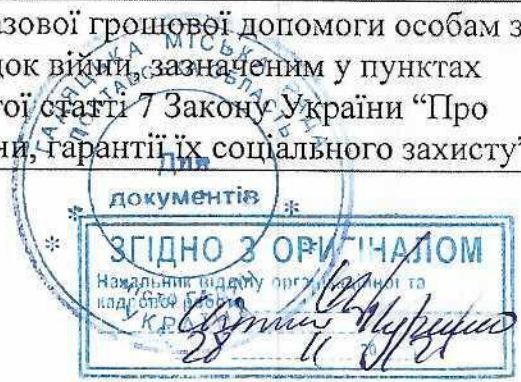 азової грошової допомоги особам з
док війни, зазначеним у пунктах
тої статті 7 Закону України “Про
ни, гарантії їх соціального захисту”
МІСЬКА
ПОЛТАВСЬКА ОБЛАСТЬ
Для
документів
ЗГІДНО З ОРИГІНАЛОМ
Начальник відділу організаційної та
кадрової роботи
28 11